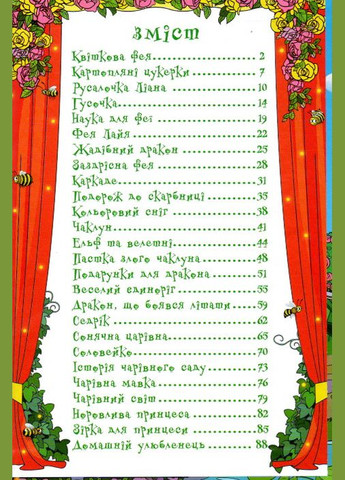 Зміст
Квіткова фея 2
Картопляні цукерки 7
Русалочка Ліана 10
Гусочка 14
Наука для феї 19
Фея Лайя 22
Жадібний дракон 25
Заздрісна фея 28
Каркаде 31
Подорож до скарбниці 35
Кольоровий сніг 38
Чаклун 41
Ельф та велетні 44
Пастка злого чаклуна 48
Подарунки для дракона 51
Веселий єдиноріг 55
Дракон, що боявся літати 59
Седрік 62
Сонячна царівна 65
Соловейко 70
Історія чарівного саду 73
Чарівна мавка 76
Чарівний світ 79
Норовлива принцеса 82
Зірка для принцеси 85
Домашній улюбленець 88